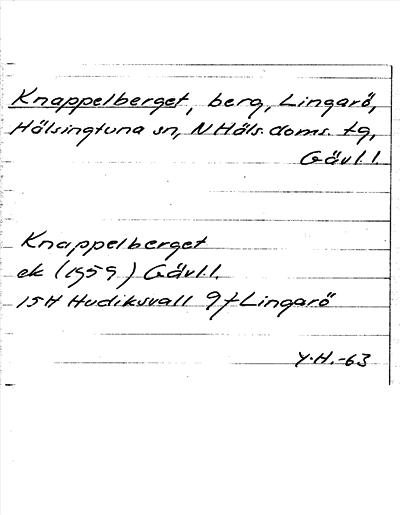 Knappelberget, berg, Lingarö,
Hälsingtuna sn, N Häls. doms. tg,
Gävl. l.
Knappelberget
ek (1959) Gävl. l.
15H Hudiksvall 9f Lingarö
Y.H.-63